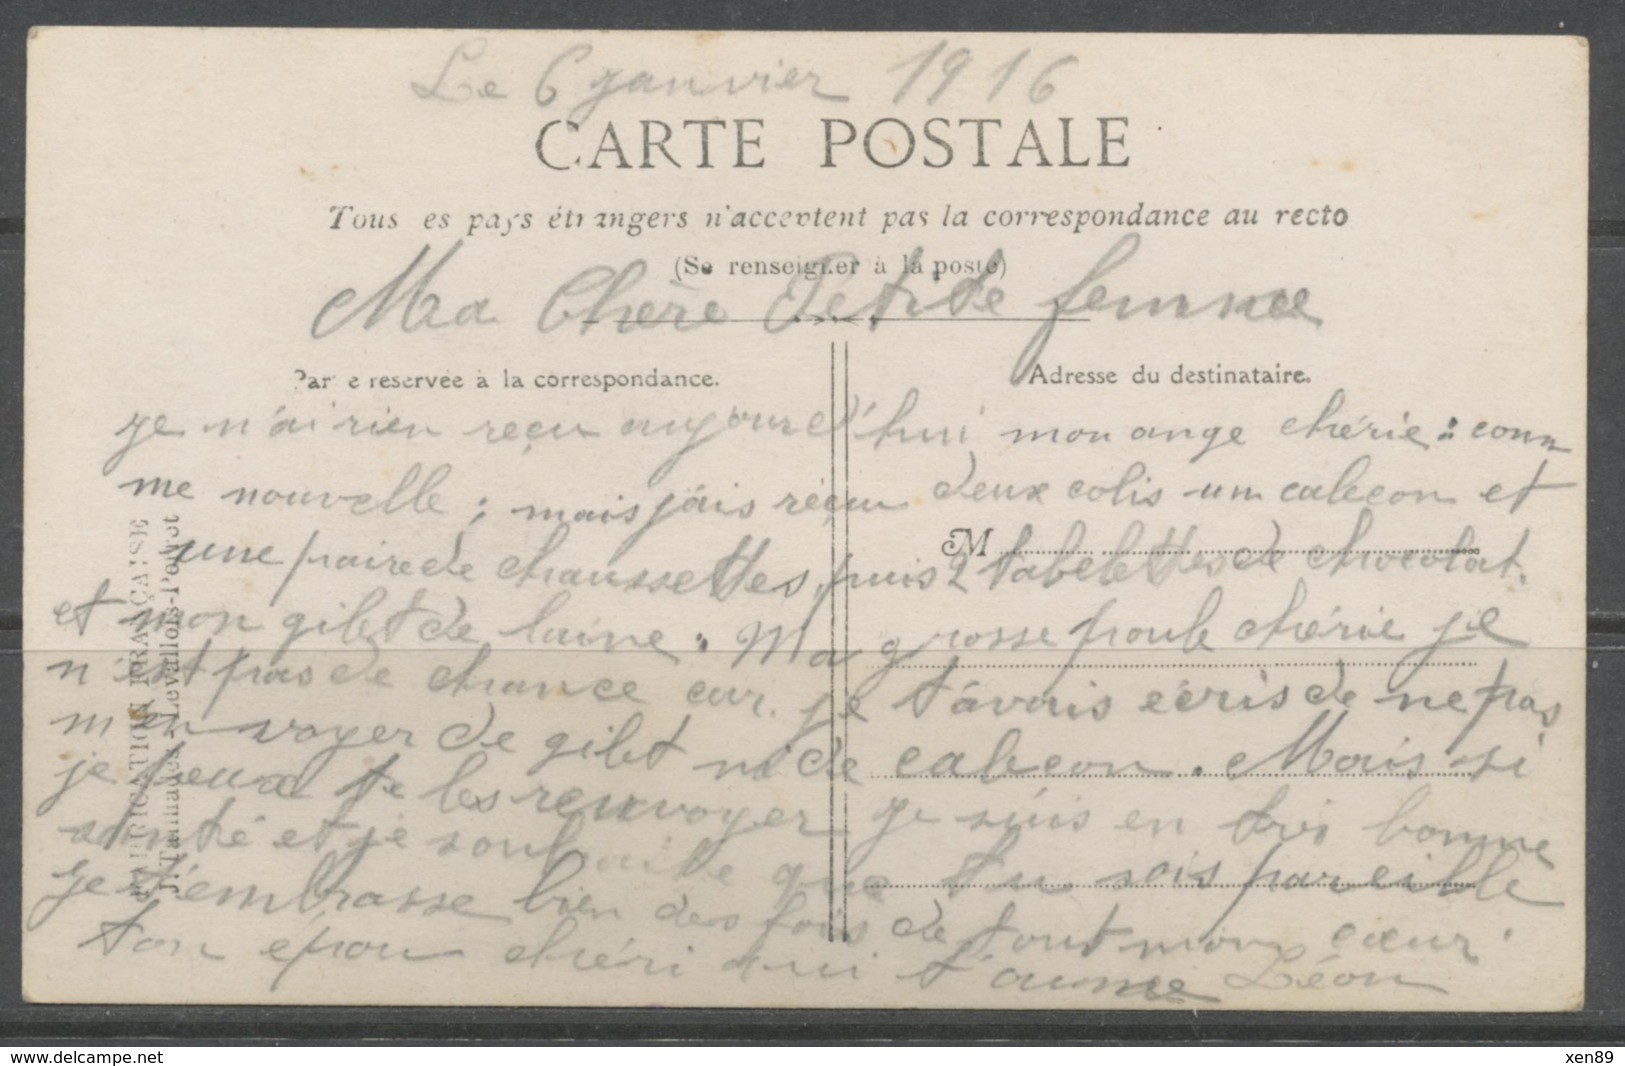 Le 6 janvier 1916
CARTE POSTALE
Tous es pays étrangers n'acceptent pas la correspondance au recto
(Se renseigner à la poste)
Ma Chère Petite femme
Par e reservée à la correspondance.
Adresse du destinataire.
je n'ai rien reçu aujourd'hui mon ange chérie : com
me nouvelle ; mais j'ais réçu deux colis un caleçon et
une paire de chaussettes, puis 2 tabelettes de chocolat.
M
et mon gilet de laine. Ma grosse poule chérie je
n'est pas de chance car je t'avais écris de ne pas
m'envoyer de gilet ni de caleçon. Mais si
je peux te les renvoyer je suis en très bonne
santé et je souhaite que tu sois pareille
je t'embrasse bien des fois de tout mon cœur
ton épou chéri qui t'aume Léon
FABRICATION FRANÇAISE
Levallois-Perret
delcampe.net
xen89